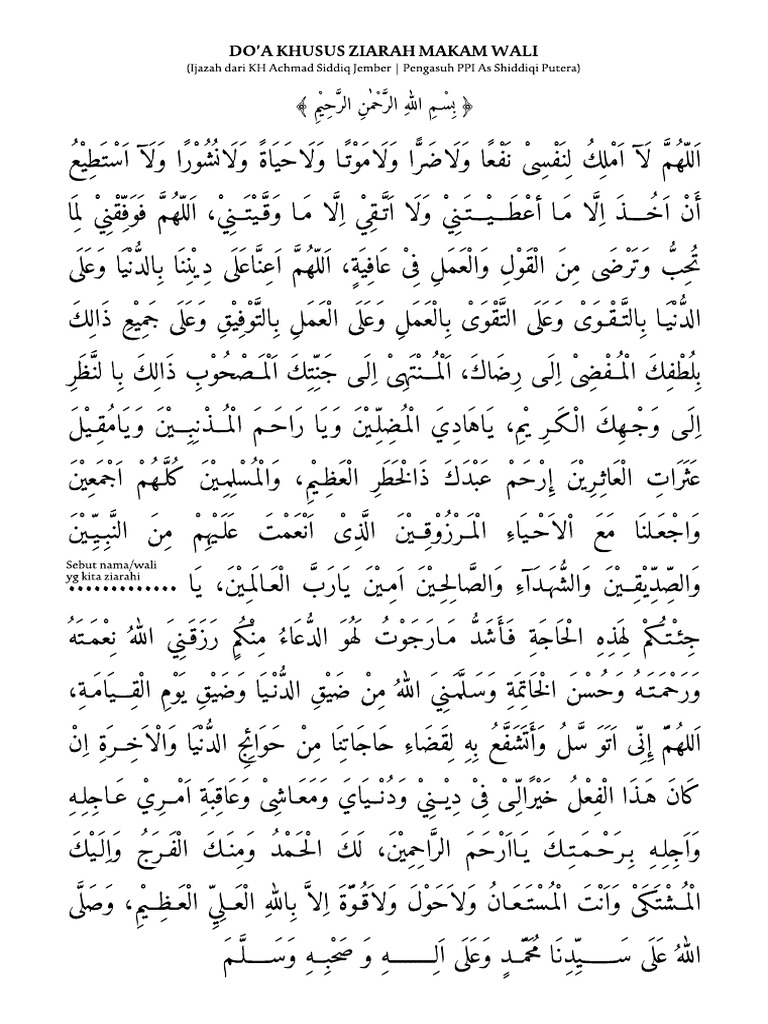 DO'A KHUSUS ZIARAH MAKAM WALI
(Ijazah dari KH Achmad Siddiq Jember | Pengasuh PPI As Shiddiqi Putera)
﴿ بِسْمِ اللهِ الرَّحْمٰنِ الرَّحِيْمِ ﴾
اَللّٰهُمَّ لَآ اَمْلِكُ لِنَفْسِىْ نَفْعًا وَلَاضَرًّا وَلَامَوْتًا وَلَاحَيَاةً وَلَانُشُوْرًا وَلَآ اَسْتَطِيْعُ
أَنْ اَخُذَ اِلَّا مَا أَعْطَيْتَنِيْ وَلَا اَتَّقِيْ اِلَّا مَا وَقَّيْتَنِيْ، اَللّٰهُمَّ فَوَفِّقْنِيْ لِمَا
تُحِبُّ وَتَرْضَى مِنَ الْقَوْلِ وَالْعَمَلِ فِىْ عَافِيَةٍ، اَللّٰهُمَّ اَعِنَّاعَلَى دِيْنِنَا بِالدُّنْيَا وَعَلَى
الدُّنْيَا بِالتَّقْوَىْ وَعَلَى التَّقْوَىْ بِالْعَمَلِ وَعَلَى الْعَمَلِ بِالتَّوْفِيْقِ وَعَلَى جَمِيْعِ ذَالِكَ
بِلُطْفِكَ الْمُفْضِىْ اِلَى رِضَاكَ، اَلْمُنْتَهِىْ اِلَى جَنَّتِكَ اَلْمَصْحُوْبِ ذَالِكَ بِا لنَّظَرِ
اِلَى وَجْهِكَ الْكَرِيْمِ، يَاهَادِيَ الْمُضِلِّيْنَ وَيَا رَاحَمَ الْمُذْنِبِيْنَ وَيَامُقِيْلَ
عَثَرَاتِ الْعَاثِرِيْنَ إِرْحَمْ عَبْدَكَ ذَالْخَطَرِ الْعَظِيْمِ، وَالْمُسْلِمِيْنَ كُلَّهُمْ اَجْمَعِيْنَ
وَاجْعَلْنَا مَعَ اْلاَحْيَاءِ الْمَرْزُوْقِيْنَ الَّذِىْ اَنْعَمْتَ عَلَيْهِمْ مِنَ النَّبِيِّيْنَ
وَالصِّدِّيْقِيْنَ وَالشُّهَدَآءِ وَالصَّالِحِيْنَ اَمِيْنَ يَارَبَّ الْعَالَمِيْنَ، يَا .............
Sebut nama/wali
yg kita ziarahi
جِئْتُكُمْ لِهَذِهِ الْحَاجَةِ فَأَشَدُّ مَارَجَوْتُ لَهُوَ الدُّعَاءُ مِنْكُمٍ رَزَقَنِيَ اللهُ نِعْمَتَهُ
وَرَحْمَتَهُ وَحُسْنَ الْخَاتِمَةِ وَسَلَّمَنِيَ اللهُ مِنْ ضَيْقِ الدُّنْيَا وَضَيْقِ يَوْمِ الْقِيَامَةِ،
اَللهُمَّ إِنِّى اَتَوَ سَّلُ وَأَتَشَفَّعُ بِهِ لِقَضَاءِ حَاجَاتِنَا مِنْ حَوَائِجِ الدُّنْيَا وَالْاَخِرَةِ اِنْ
كَانَ هَذَا الْفِعْلُ خَيْرًالِىْ فِىْ دِيْنِيْ وَدُنْيَاي وَمَعَاشِىْ وَعَاقِبَةِ اَمْرِيْ عَاجِلِهِ
وَاَجِلِهِ بِرَحْمَتِكَ يَااَرْحَمَ الرَّاحِمِيْنَ، لَكَ الْحَمْدُ وَمِنَكَ الْفَرَجُ وَاِلَيْكَ
الْمُشْتَكَىْ وَاَنْتَ الْمُسْتَعَانُ وَلاَحَوْلَ وَلاَقُوَّةَ اِلاَّ بِاللهِ الْعَلِيِّ الْعَظِيْمِ، وَصَلَّى
اللهُ عَلَى سَيِّدِنَا مُحَمَّدٍ وَعَلَى اَلِهِ وَ صَحْبِهِ وَسَلَّمَ